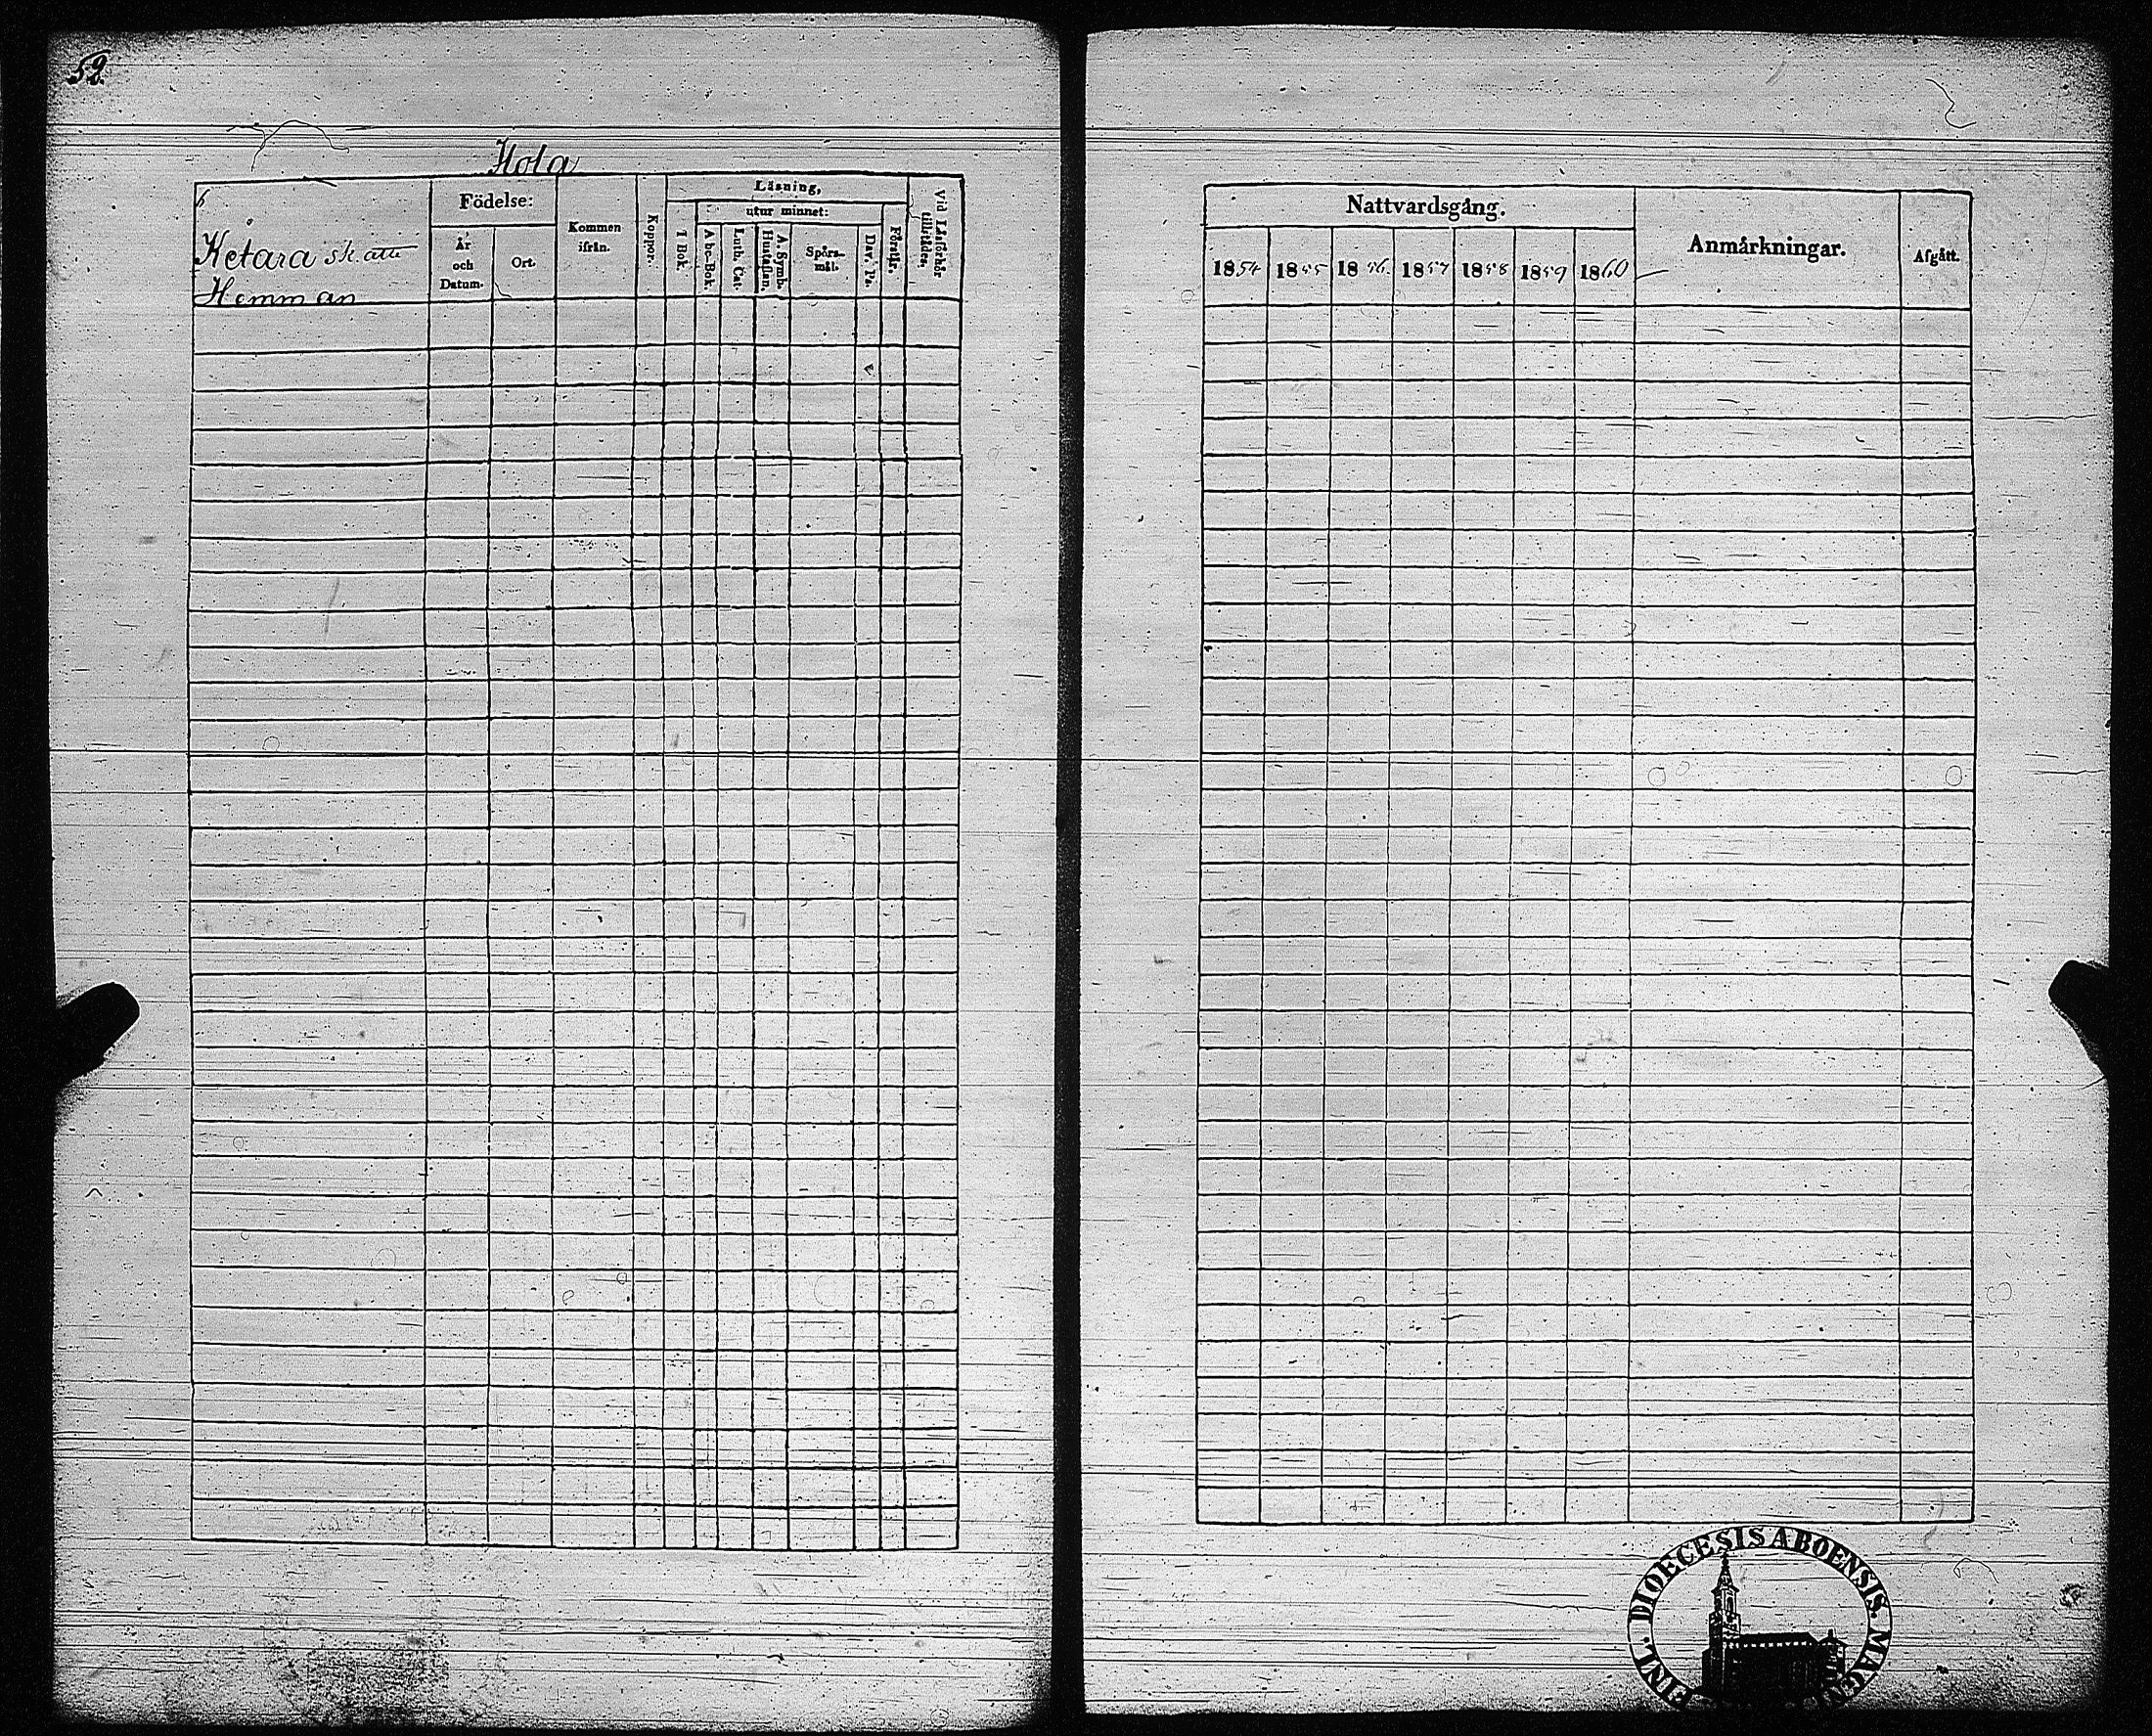 52.
Hola
Ketara skatte
Hemman
Födelse:
År
och
Datum.
Ort.
Kommen
ifrån.
Koppor.
Läsning,
I Bok.
utur minnet:
A be-Bok.
Luth. Cat.
A. Symb.
Hustaflan.
Spörs-
mål.
Dav. Ps.
Förstår.
Vid Läsförhör.
tillstädes.
Nattvardsgång.
1854 1855 1856. 1857 1858 1859 1860
Anmärkningar.
Afgått.
FINL. DIOECESIS ABOENSIS. MAGNI